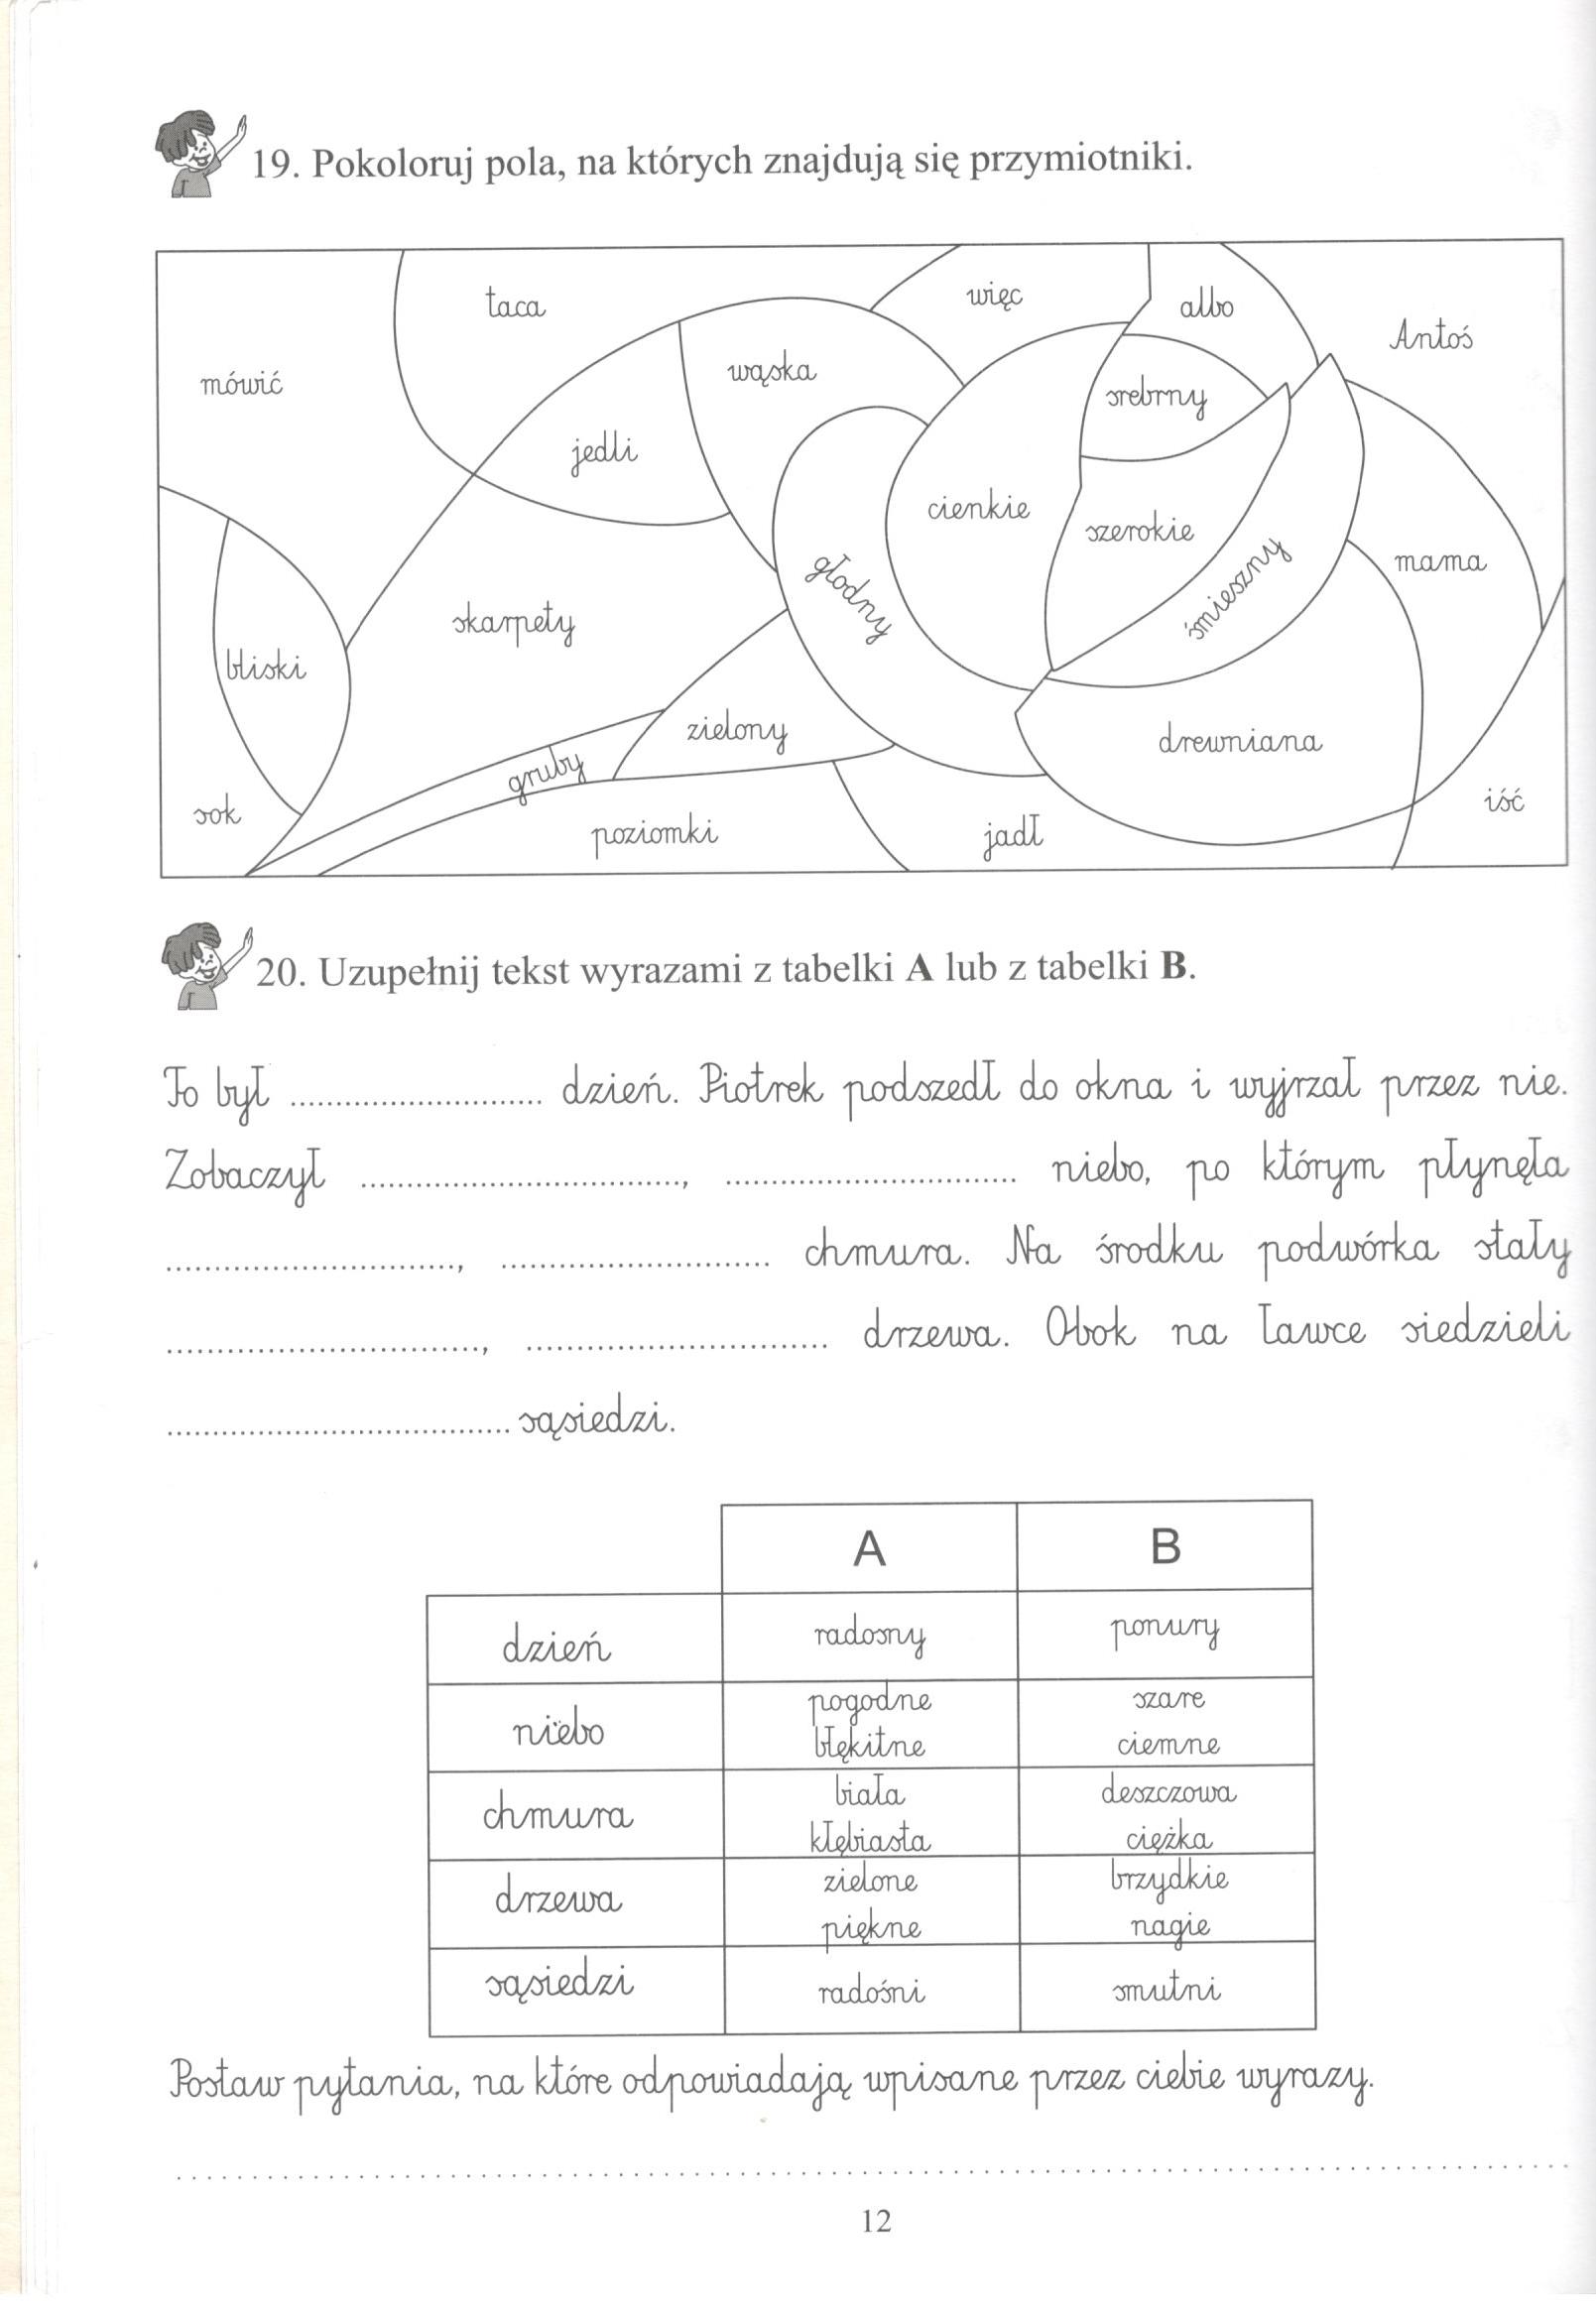 19. Pokoloruj pola, na których znajdują się przymiotniki.
taca
więc
albo
Antoś
mówić
wąska
srebrny
jedli
cienkie
szerokie
głodny
śmieszny
mama
skarpety
bliski
zielony
drewniana
gruby
sok
poziomki
jadł
iść
20. Uzupełnij tekst wyrazami z tabelki A lub z tabelki B.
To był .......................... dzień. Piotrek podszedł do okna i wyjrzał przez nie.
Zobaczył ................................., .............................. niebo, po którym płynęła
.............................., ............................ chmura. Na środku podwórka stały
................................, ............................... drzewa. Obok na ławce siedzieli
................................... sąsiedzi.
A B
dzień radosny ponury
niebo pogodne szare
błękitne ciemne
chmura biała deszczowa
kłębiasta ciężka
drzewa zielone brzydkie
piękne nagie
sąsiedzi radośni smutni
Postaw pytania, na które odpowiadają wpisane przez ciebie wyrazy.
12